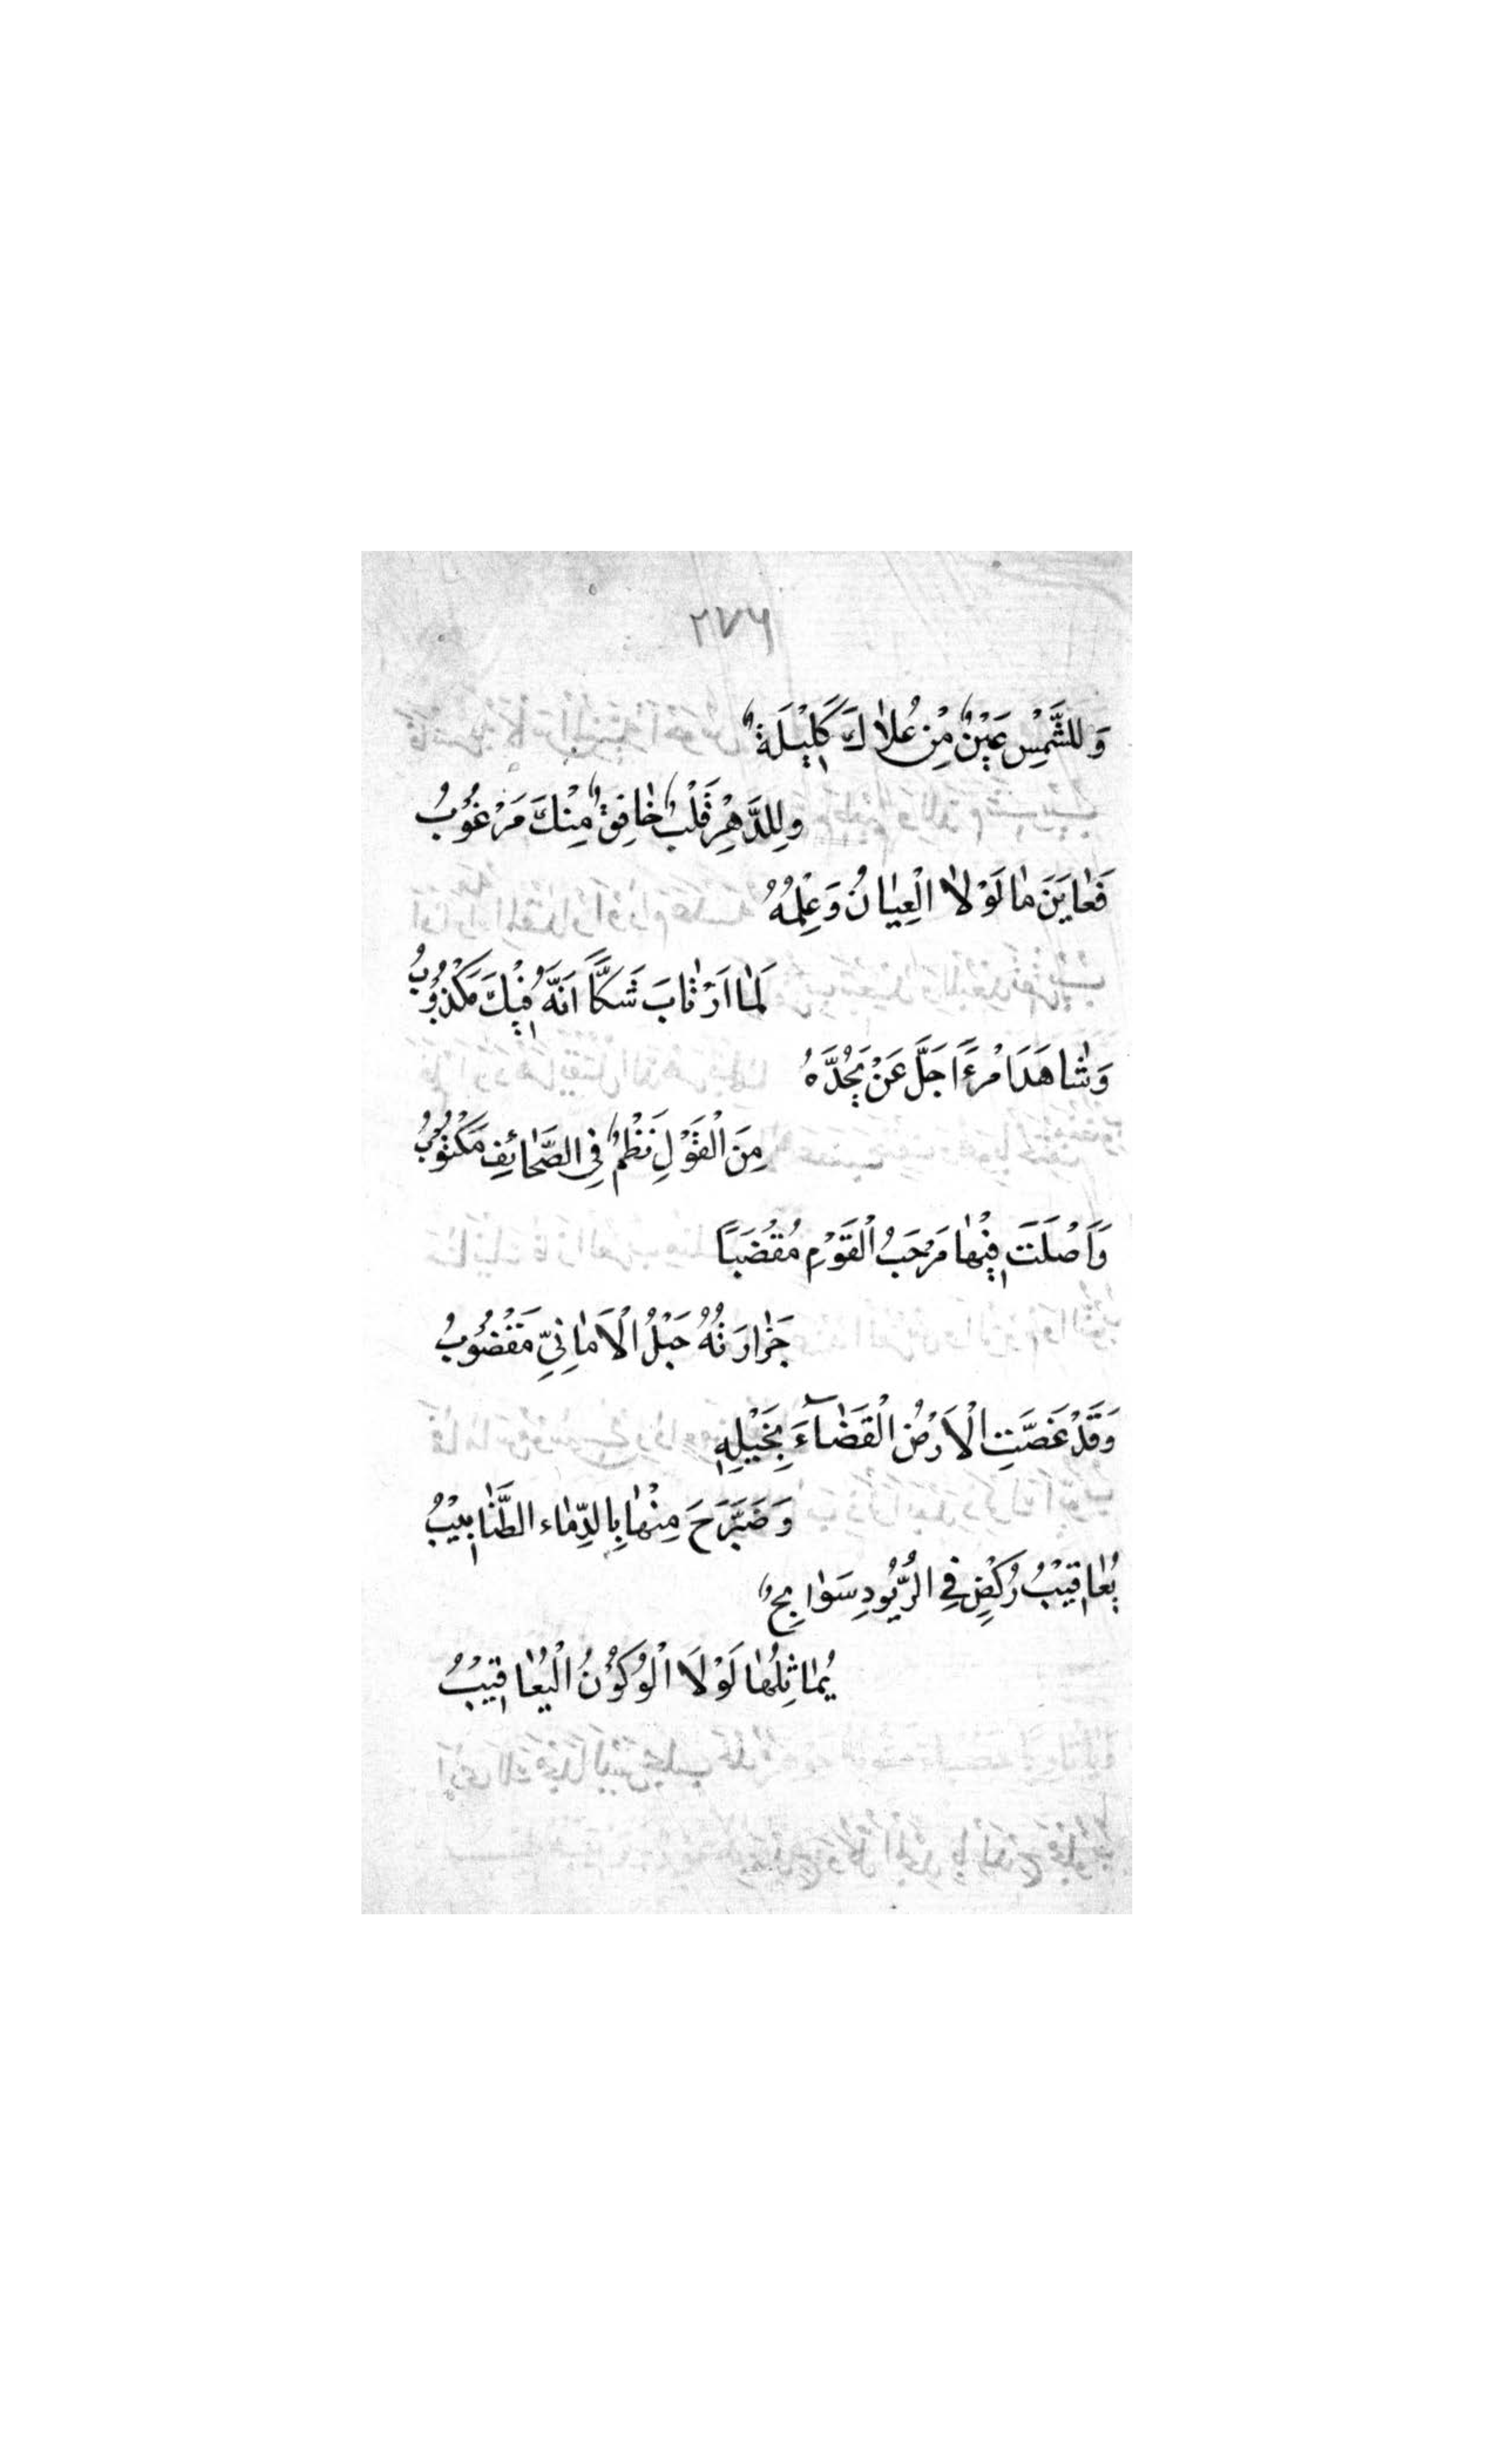 ٢٧٦
وَللشَّمْسِ عَيْنٌ مِنْ عُلاٰكَ كَلِيْلَةٌ
ولِلدَّهْرِ قَلْبٌ خٰافِقٌ مِنْكَ مَرْعُوْبُ
فَعٰايَنَ مٰا لَوْلاٰ الْعِيٰانُ وَعِلْمُهُ
لَمٰا ارْتٰابَ شَكَّاً اَنَّهُ فِيْكَ مَكْذُوْبُ
وَشٰاهَدَ امْرءًا جَلَّ عَنْ يَحُدَّهُ
مِنَ الْقَوْلِ نَظْمٌ فِي الصَّحٰائِفِ مَكْتُوْبُ
وَاَصْلَتَ فِيْهٰا مَرْحَبُ الْقَوْمِ مُقْضَبَاً
جَرٰارَتُهُ حَبْلُ الْاَمٰانِيِّ مَقْضُوْبُ
وَقَدْ غَصَّتِ الْاَرْضُ الْقَضٰآءَ بِخَيْلِهِ
وَضَرَّحَ مِنْهٰا بِالدِّمٰاء الظَّنٰابِيْبُ
يُعٰاقِيْبُ رُكْضٍ فِي الرُّيُودِ سَوٰابِحٌ
يُمٰاثِلُهٰا لَوْلَا الْوُكُوْنُ الْيُعٰاقِيْبُ